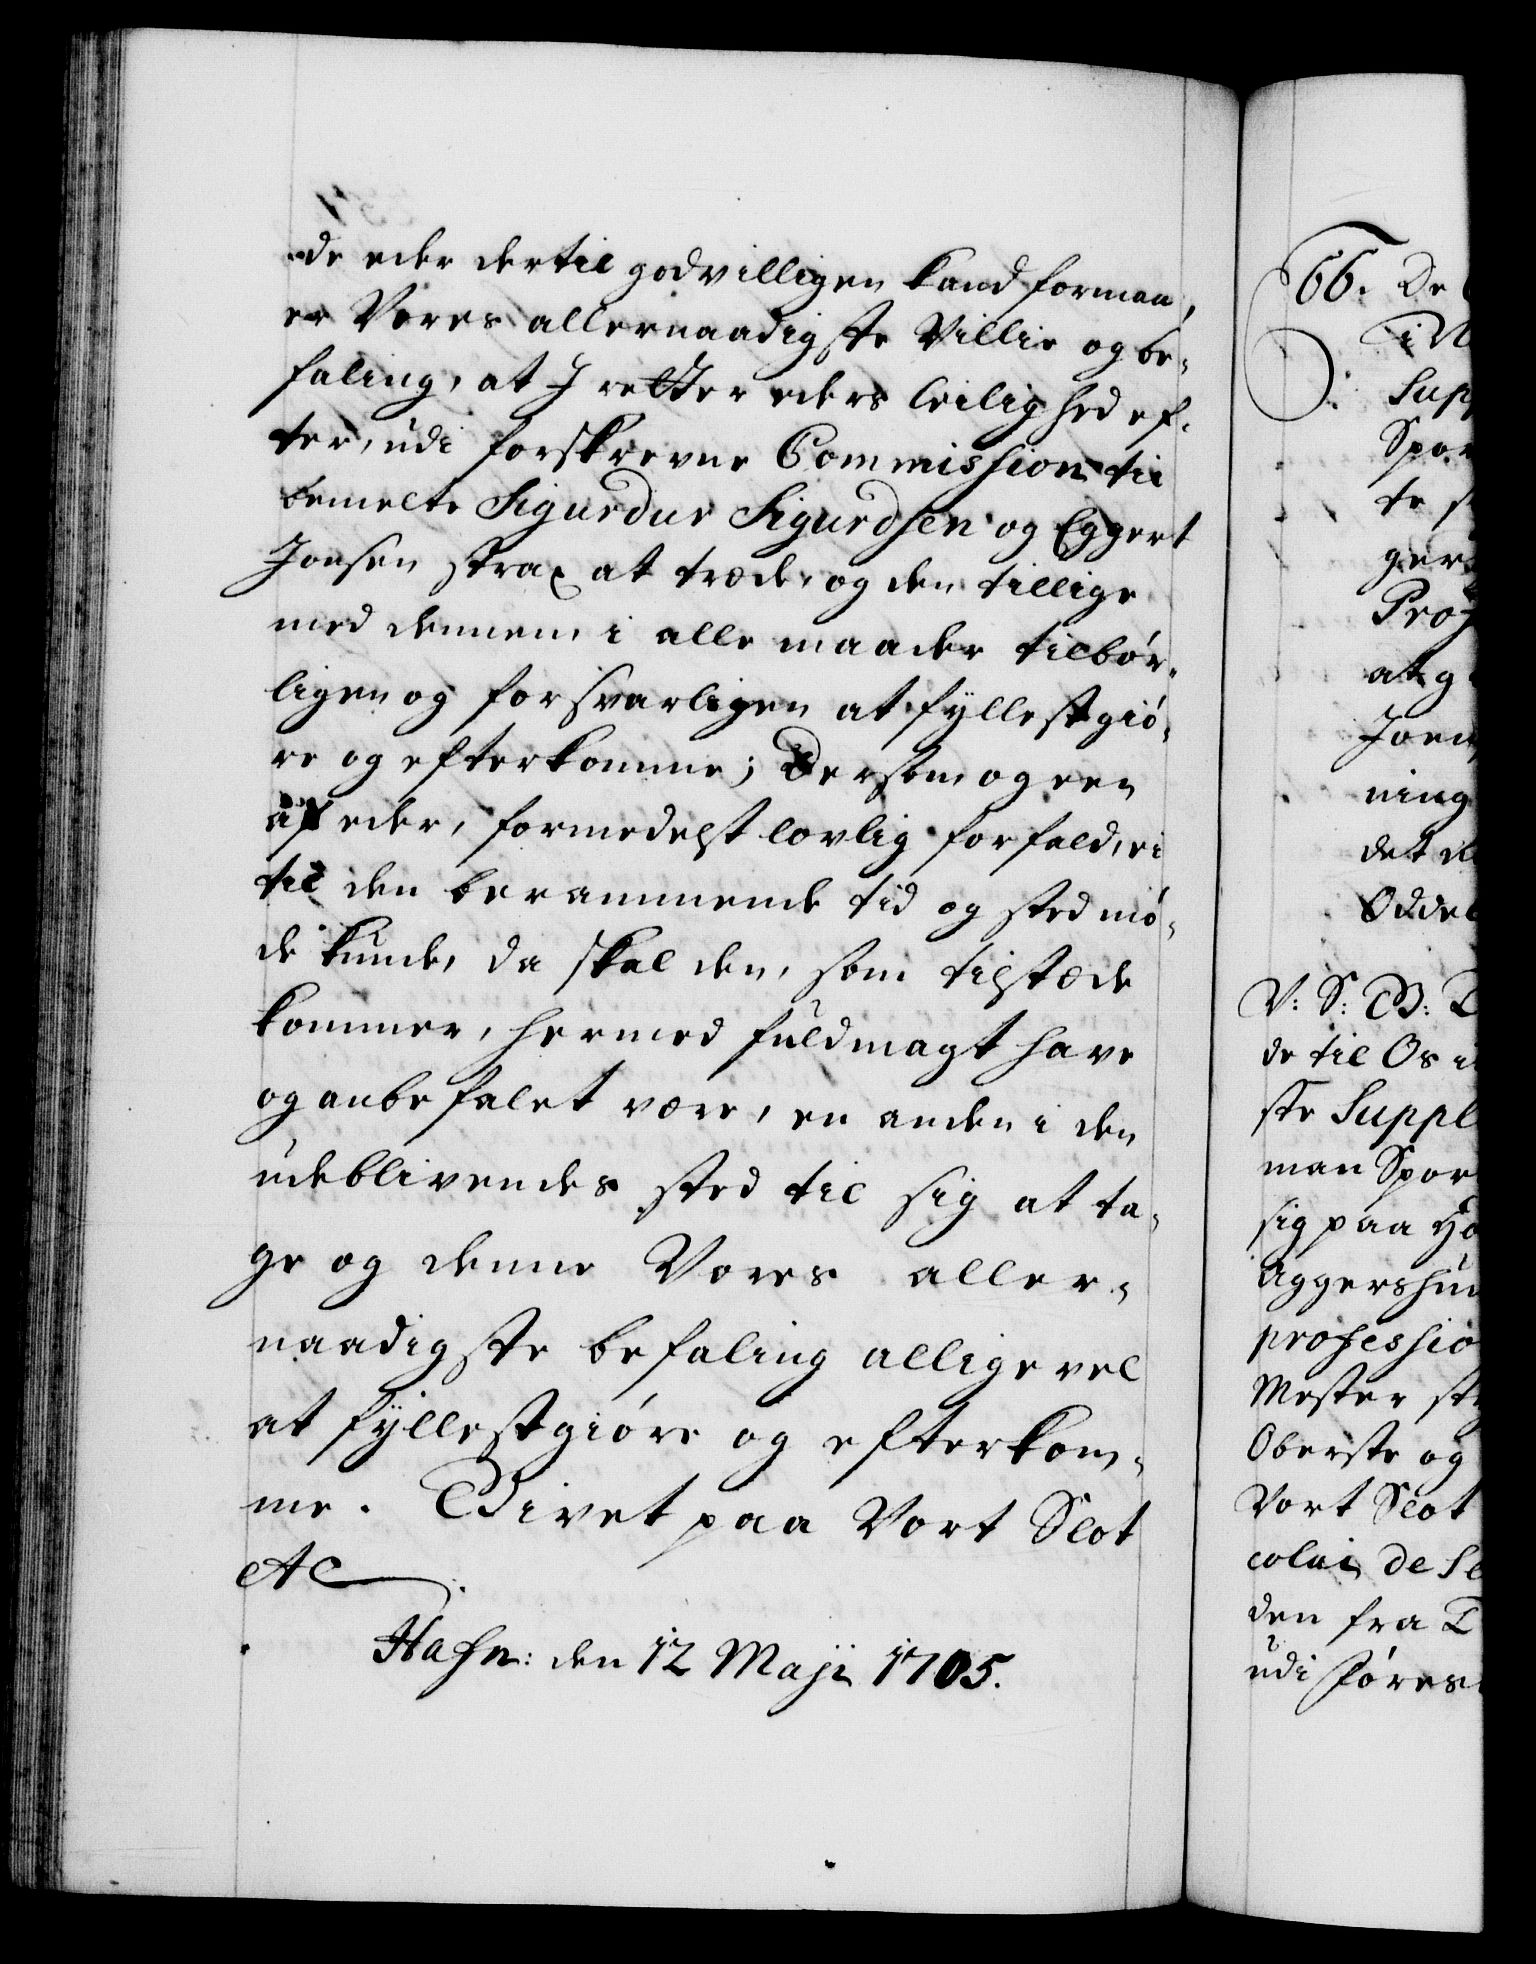 de eder dertil godvilligen kand formaa,
er Vores allernaadigste Villie og be-
faling, at I retter eders leilighed ef-
ter, udi forskrevne Commission til
bemelte Sigurdur Sigurdsen og Eggert
Jonsen strax at træde, og den tillige
med dennem i alle maader tilbør-
ligen og forsvarligen at fyllestgiø-
re og efterkomme; Dersom og een
af eder, formedelst lovlig forfald, ei
til den berammende tid og sted mø-
de kunde, da skal den, som tilstæde
kommer, hermed fuldmagt have
og anbefalet være, en anden i den
udeblivendes sted til sig at ta-
ge og denne Vores aller-
naadigste befaling alligevel
at fyllestgiøre og efterkom-
me. Givet paa Vort Slot
etc
Hafn: den 12 Maji 1705.
66. De
Supp
Spor
te
ger
Pro
at g
Joen
ning
det
Oddel
V: S: G:
de til Os
ste Suppl
man Spor
sig paa
Aggershuu
professio
Mester
Oberste og
Vort Slot
colai de Se
den fra
udi Føres